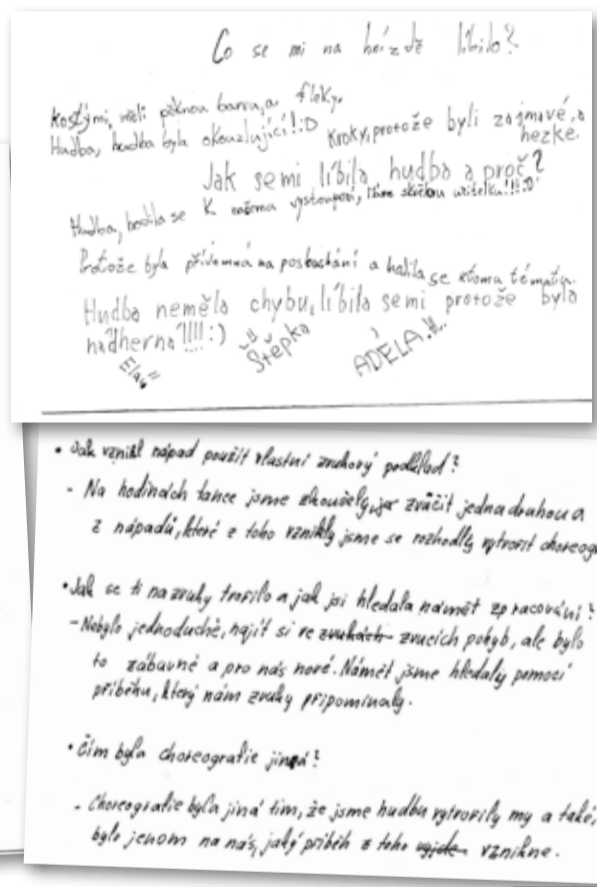 Co se mi na hvízdě líbilo?
Kostými, měli pěknou barvu, a fleky.
Hudba, hudba byla okouzlující!:D Kroky, protože byli zajmavé, a hezké.
Jak semi líbila hudba a proč?
Hudba, hodila se K našemu vystoupení, Máme skvělou učitelku!!!:D
Protože byla přídemná na poslouchání a hodila se ktomu tématu.
Hudba neměla chybu, líbila semi protože byla
nádherná!!!!:)
Elaɥ Štěpka ADÉLA!!
• Jak vznikl nápad použít vlastní zvukový podklad?
- Na hodinách tance jsme zkoušely, zvučit jedna druhou a
z nápadů, které z toho vznikly jsme se rozhodly vytvořit choreogra
• Jak se ti na zvuky tvořilo a jak jsi hledala námět zpracování?
- Nebylo jednoduché, najít si ve zvukách zvucích pohyb, ale bylo
to zábavné a pro nás nové. Námět jsme hledaly pomocí
příběhu, který nám zvuky připomínaly.
• Čím byla choreografie jiná?
- Choreografie byla jiná tím, že jsme hudbu vytvořily my a také,
bylo jenom na nás, jaký příběh z toho vyjde vznikne.